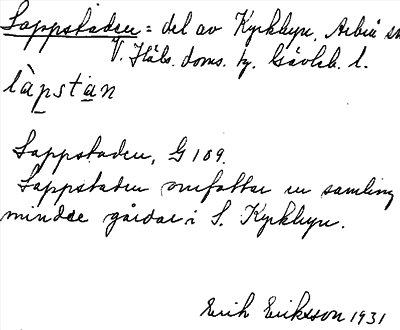 Lappstaden = del av Kyrkbyn. Arbrå sn
V. Häls. doms. hg. Gävleb. l.
làpstan
Lappstaden, G 109.
Lappstaden omfattar en samling
mindre gårdar i S. Kyrkbyn.
Erik Eriksson 1931